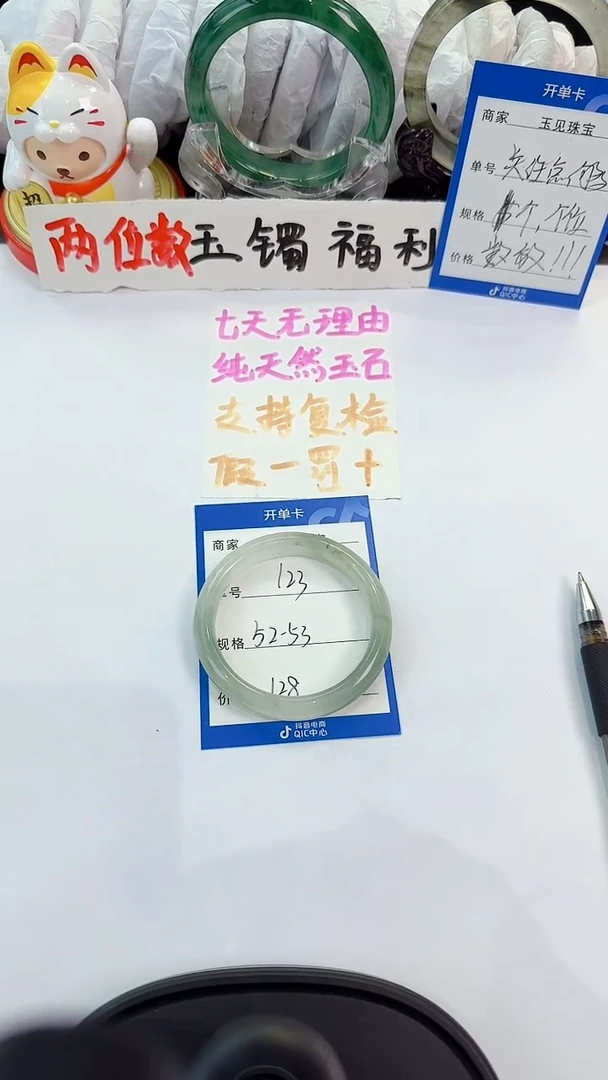 两位数玉镯福利
开单卡
商家 玉见珠宝
单号
规格 个,个位
价格 数放!!!
抖音电商
QIC中心
七天无理由
纯天然玉石
支持复检
假一罚十
开单卡
商家
号 123
规格 52-53
价 128
抖音电商
QIC中心